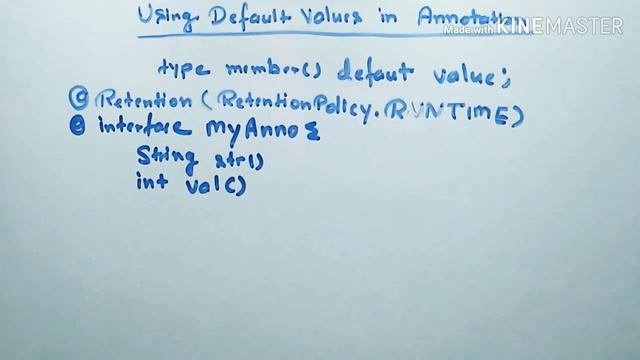 Using Default Values in Annotation
Made with KINEMASTER
type member() defaut value;
@ Retention (RetentionPolicy.RUNTIME)
@ interface MyAnno {
String str()
int val()